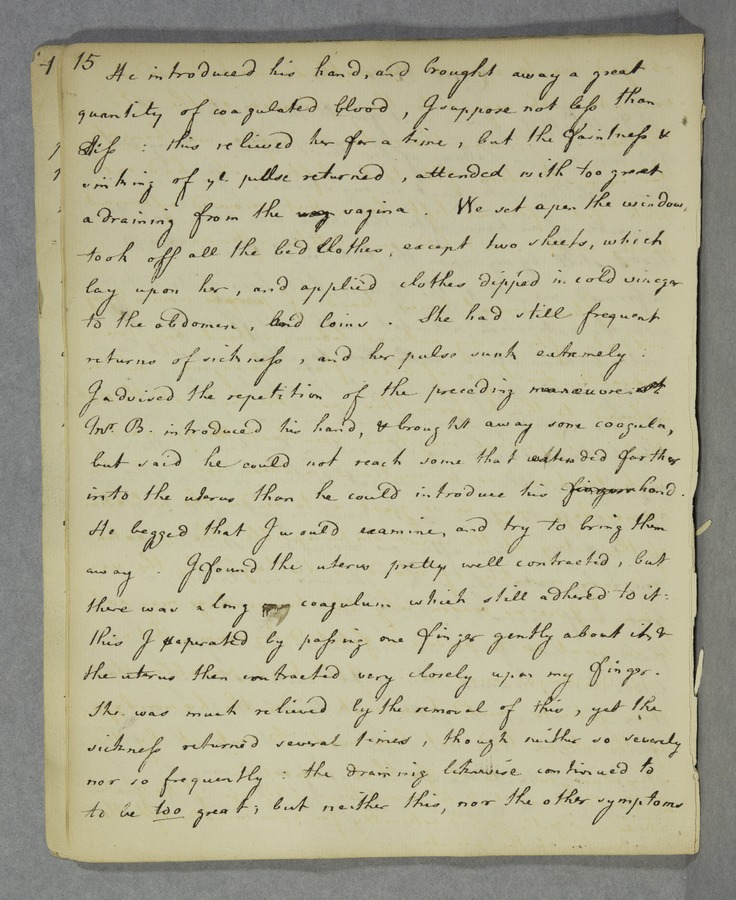 15
He introduced his hand, and brought away a great
quantity of coagulated blood, I suppose not less than
: this relieved her for a time, but the faintness &
sinking of ye. pulse returned, attended with too great
a draining from the vagina. We set open the window,
took off all the bed Clothes, except two sheets, which
lay upon her, and applied clothes dipped in cold vinegar
to the abdomen, and loins. She had still frequent
returns of sickness, and her pulse sunk extremely.
I advised the repetition of the preceding manœuvre:
Mr. B. introduced his hand, & brought away some coagula,
but said he could not reach some that extended farther
into the uterus than he could introduce his fingers hand.
He begged that I would examine, and try to bring them
away. I found the uterus pretty well contracted, but
there was a long coagulum which still adhered to it:
this I seperated by passing one finger gently about it, &
the uterus then contracted very closely upon my finger.
She was much relieved by the removal of this, yet the
sickness returned several times, though neither so severely
nor so frequently: the draining likewise continued to
to be too great; but neither this, nor the other symptoms